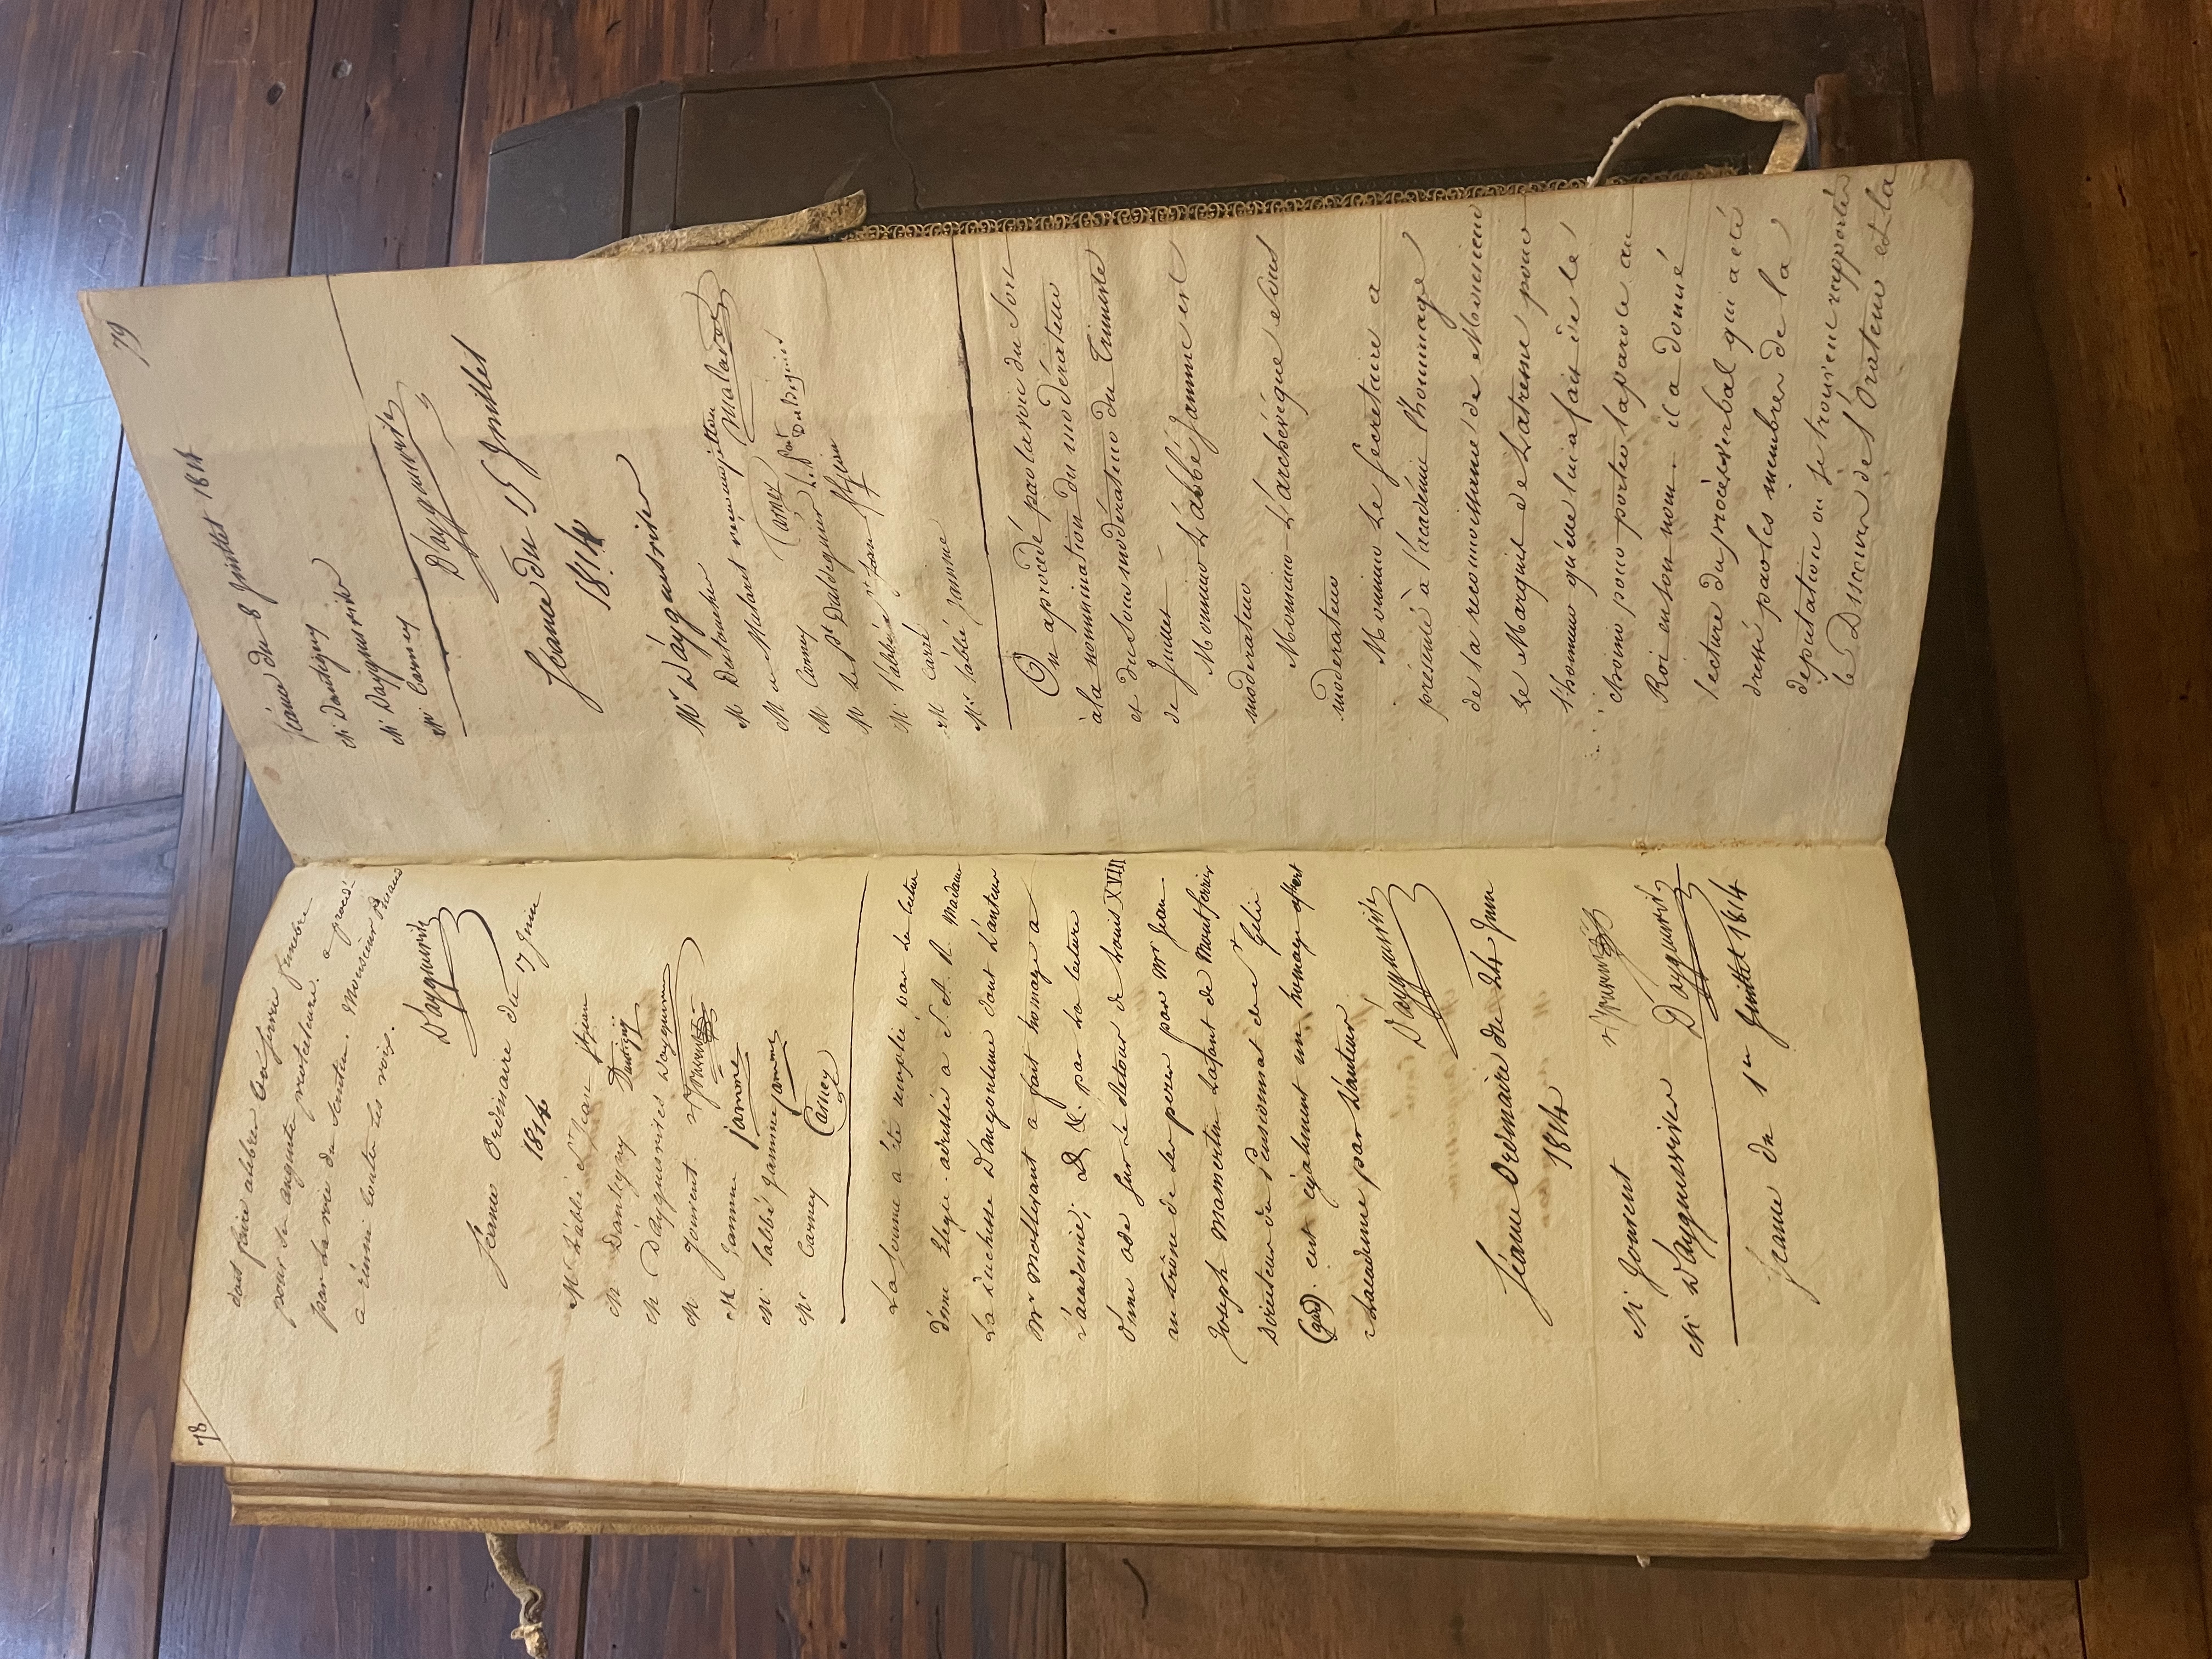 78
doit faire célébrer un service funèbre
pour son auguste protecteur. a procédé
par la voie du scrutin. Monsieur Picaud
a réuni toutes les voix.
D'ayguesvives
Séance Ordinaire du 17 Juin
1814
Mr L'abbé St Jean St jean
M Dantigny Dantigny
M D'ayguesvives D'ayguesvives
M. Jouvent
M Jamme jamme
M. l'abbé Jamme jamme
Mr Carney Carney
La séance a été remplie par la lecture
d'une Elégie adressée à S. A. R. Madame
La duchesse D'angoulême dont L'auteur
Mr Mollevaut a fait homage à
l'académie; & &. par la lecture
d'une ode sur le Retour de Louis XVIII
au trône de ses peres par Mr Jean
Joseph Mamertin Lafont de Montferrier
Directeur du Pensionnat de St Gelis
(gard). cest également un homage offert
a Lacademie par L'auteur
D'ayguesvives
Séance Ordinaire du 24 Juin
1814
M Jouvent
M D'ayguesvives D'ayguesvives
Séance du 1er Juillet 1814
79
Séance du 8 Juillet 1814
M Dantigny
M D'ayguesvives
M. Carney
D'ayguesvives
Séance du 15 Juillet
1814
Mr D'ayguesvives
M Dutoucher
M de Malaret Malaret
M Carney Carney
M le pt Daldeguier
M. l'abbé St jean St jean
M Carré
Mr l'abbé jamme
On a procédé par la voie du Sort
à la nommination du modérateur
et du sous modérateur du Trimestre
de Juillet —
Monsieur L'abbé Jamme est
modérateur
Monsieur L'archévêque sous
modérateur
Monsieur Le Secretaire a
présenté à l'académie l'hommage
de la reconnoissance de Monsieur
Le Marquis de Latresne pour
l'honneur qu'elle lui a fait de le
choisir pour porter la parole au
Roi en son nom. il a donné
lecture du procès verbal qui a été
dressé par les membres de la
députation ou se trouvent rapportés
le Discours de l'Orateur et la